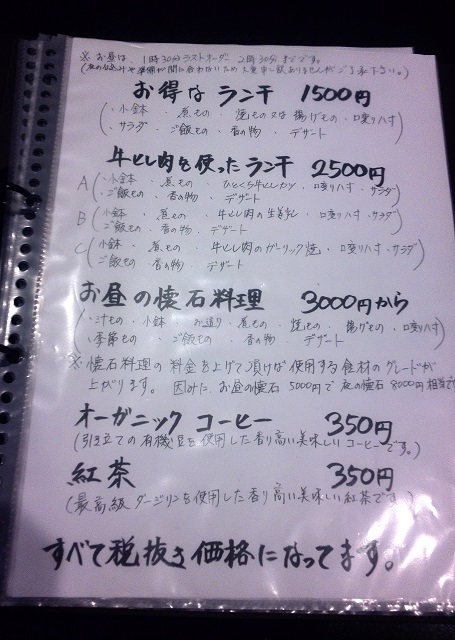 ※ お昼は、1時30分ラストオーダー 2時30分までです。
(夜の仕込みや準備が間に合わないため大変申し訳ありませんがご了承下さい。)
お得なランチ 1500円
(・小鉢 ・煮もの ・焼もの又は揚げもの ・口変り八寸
・サラダ ・ご飯もの ・香の物 ・デザート)
牛ヒレ肉を使ったランチ 2500円
A(・小鉢 ・煮もの ・ひとくち牛ヒレカツ ・口変り八寸 ・サラダ
・ご飯もの ・香の物 ・デザート)
B(・小鉢 ・煮もの ・牛ヒレ肉の生姜煮 ・口変り八寸 ・サラダ
・ご飯もの ・香の物 ・デザート)
C(・小鉢 ・煮もの ・牛ヒレ肉のガーリック焼 ・口変り八寸 ・サラダ
・ご飯もの ・香の物 ・デザート)
お昼の懐石料理 3000円から
(・汁もの ・小鉢 ・お造り ・煮もの ・焼もの ・揚げもの ・口変り八寸
・季節もの ・ご飯もの ・香の物 ・デザート)
※懐石料理の料金を上げて頂けば使用する食材のグレードが
上がります。 因みに、お昼の懐石 5000円で夜の懐石 8000円相当で
オーガニックコーヒー 350円
(引き立ての有機豆を使用した香り高い美味しいコーヒーです。)
紅茶 350円
(最高級ダージリンを使用した香り高い美味しい紅茶です。)
すべて税抜き価格になってます。